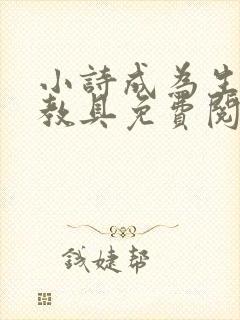 小詩成為生
教具免費閱
錢婕幫